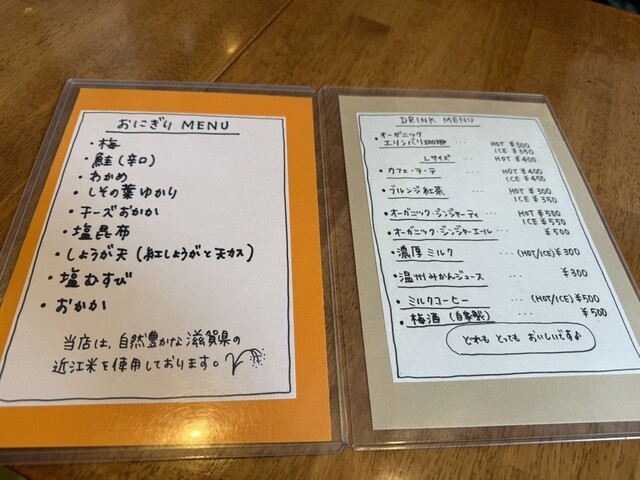 おにぎり MENU
・梅
・鮭(辛口)
・わかめ
・しその葉ゆかり
・チーズおかか
・塩昆布
・しょうが天(紅しょうがと天カス)
・塩むすび
・おかか
当店は、自然豊かな滋賀県の
近江米を使用しております。
DRINK MENU
・オーガニック
エリンバリ珈琲 ... HOT ¥300
ICE ¥350
Lサイズ HOT ¥400
・カフェ・ラ・テ ... HOT ¥400
ICE ¥450
・ブレンジ紅茶 ... HOT ¥300
ICE ¥350
・オーガニック・ジンジャーティ ... HOT ¥500
ICE ¥550
・オーガニック・ジンジャーエール ... ¥500
・濃厚ミルク ... (HOT/ICE)¥300
・温州みかんジュース ... ¥300
・ミルクコーヒー ... (HOT/ICE)¥500
・梅酒(自家製) ... ¥500
どれも とっても おいしいです♪